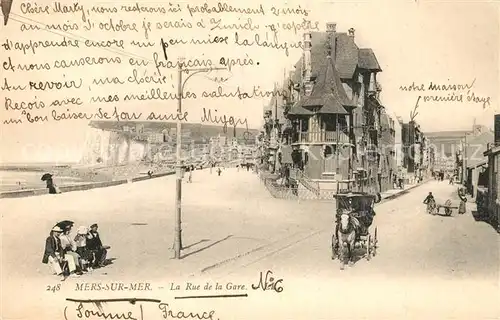 Chère Marty, nous resterons ici probablement 2 mois
au mois d'octobre je serais à Zurich. j'espère
d'apprendre encore un peu mieu la langue,
et nous causerons en français après.
Au revoir, ma chérie.
Reçois avec mes meilleures salutations
un bon baiser de ton amie
notre maison
première étage
248 MERS-SUR-MER. - La Rue de la Gare. No 6
(Somme) France.